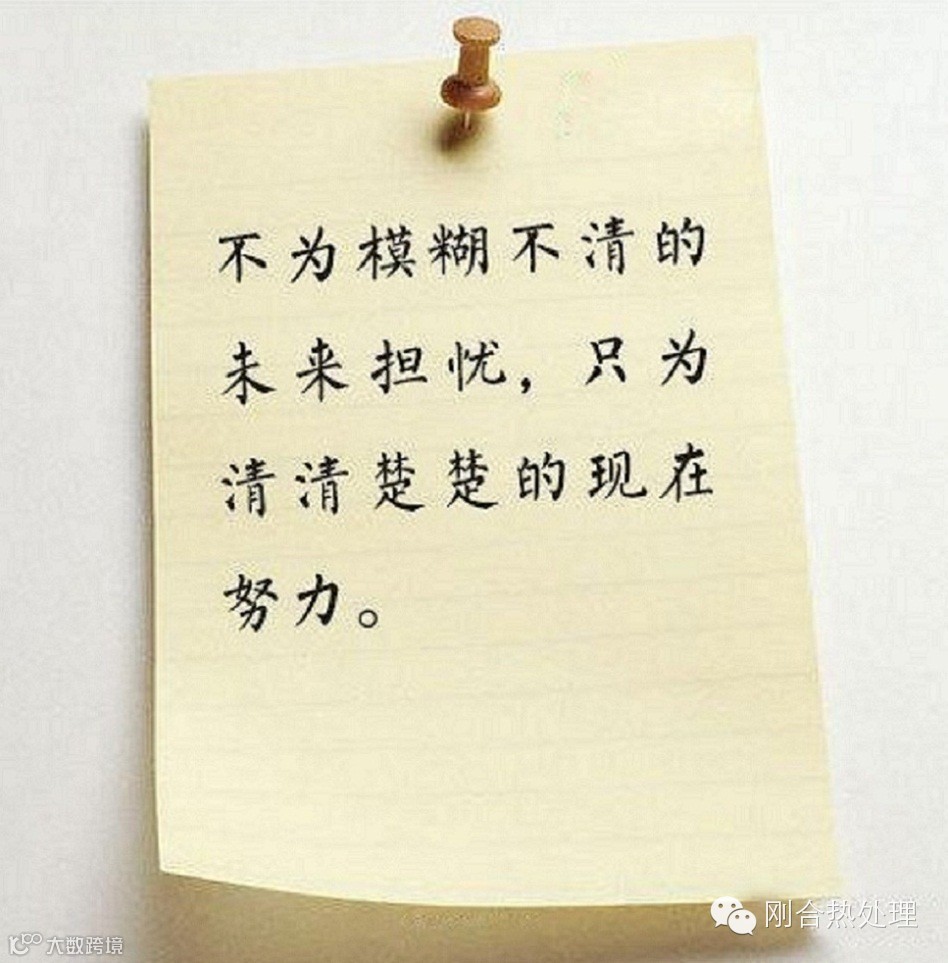 不为模糊不清的
未来担忧，只为
清清楚楚的现在
努力。
刚合热处理
大数跨境